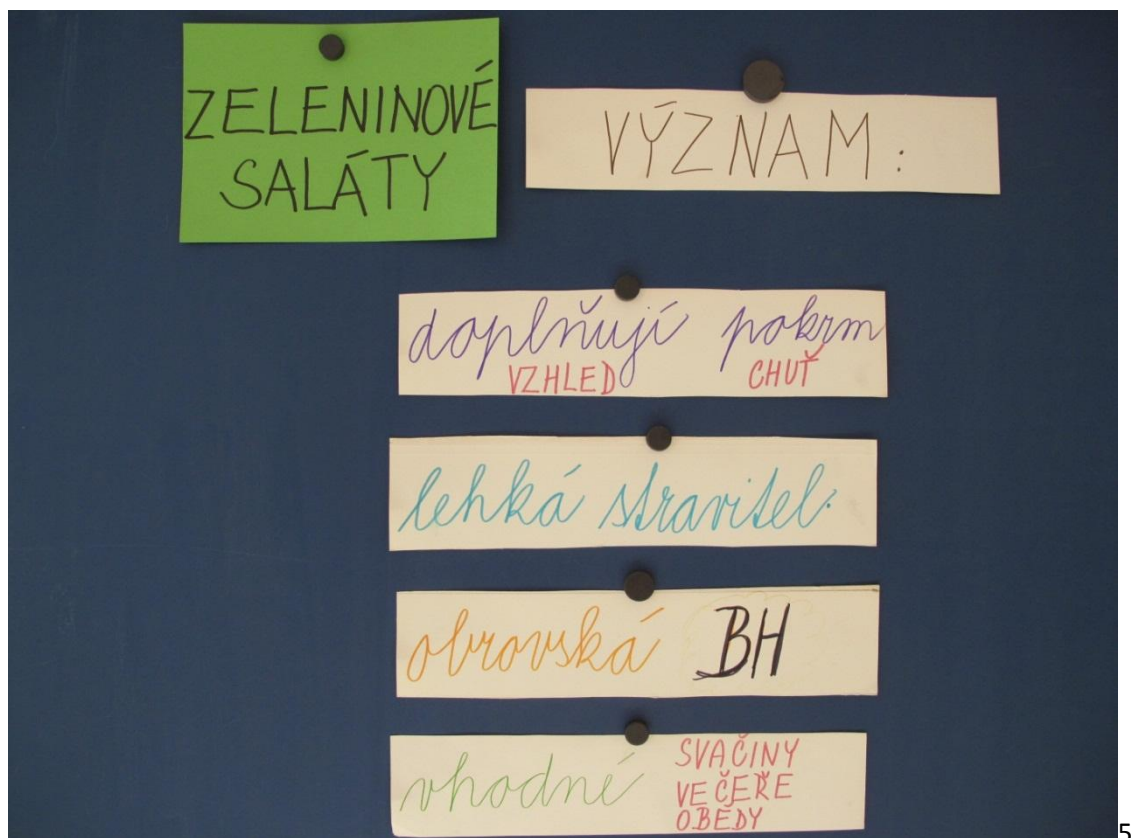 ZELENINOVÉ
SALÁTY
VÝZNAM:
doplňují pokrm
VZHLED CHUŤ
lehká stravitel.
obrovská BH
vhodné
SVAČINY
VEČEŘE
OBĚDY
5